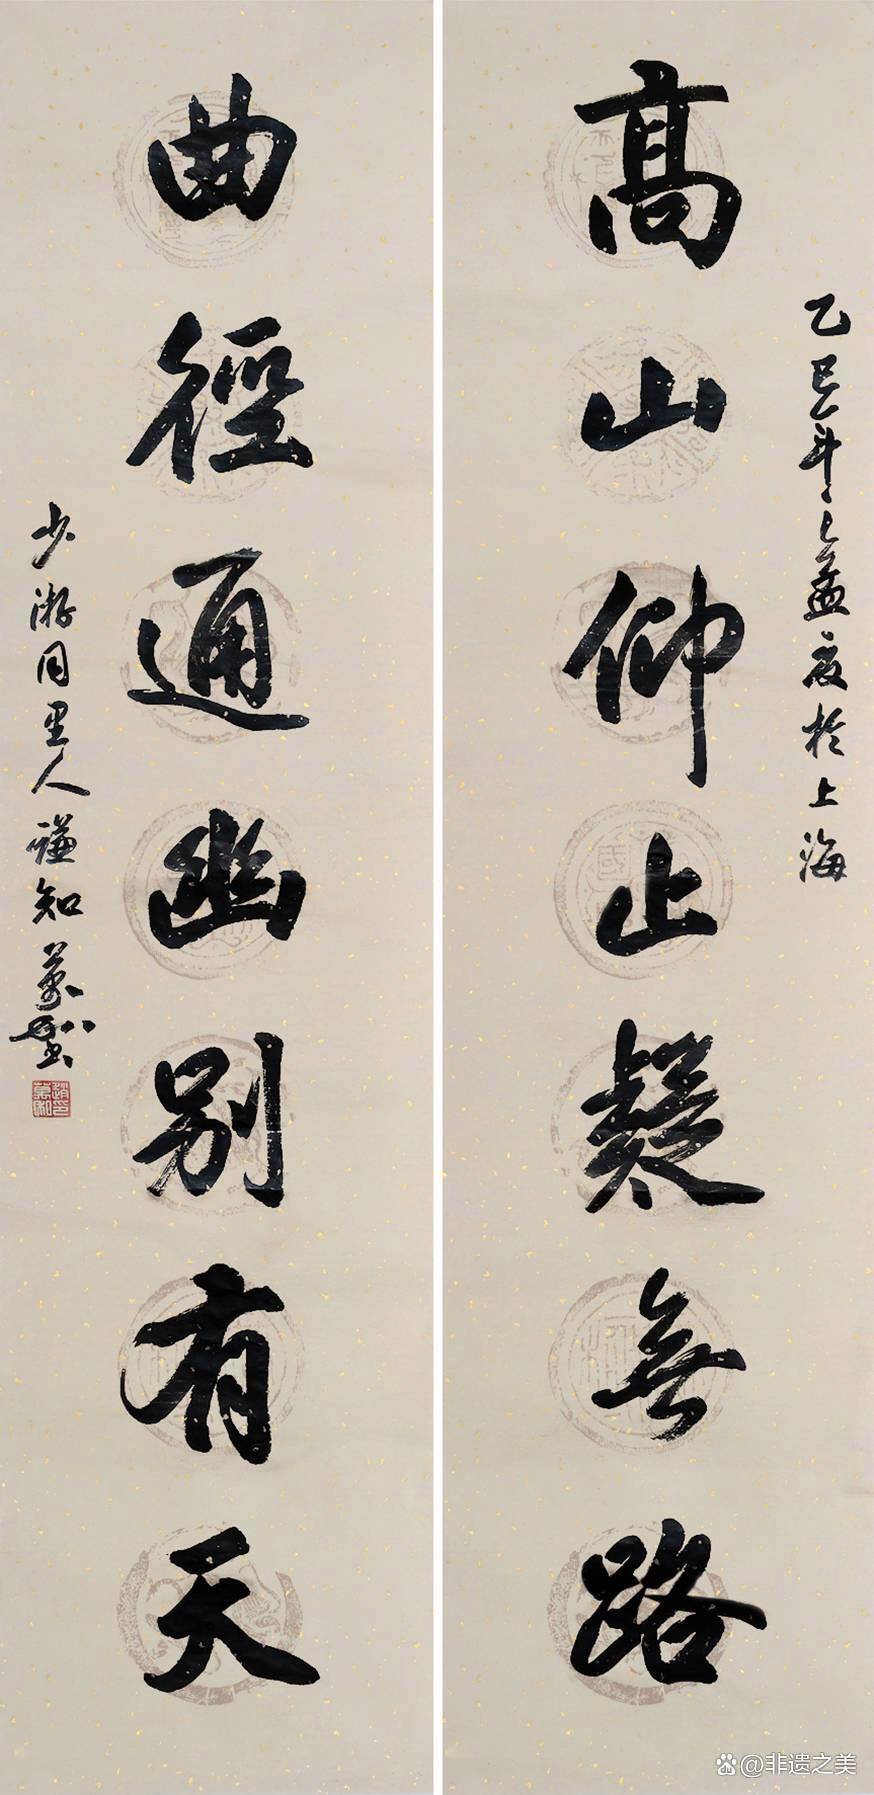 高山仰止疑無路
乙巳年
於上海
曲徑通幽別有天
少游同里人謙知
@非遗之美